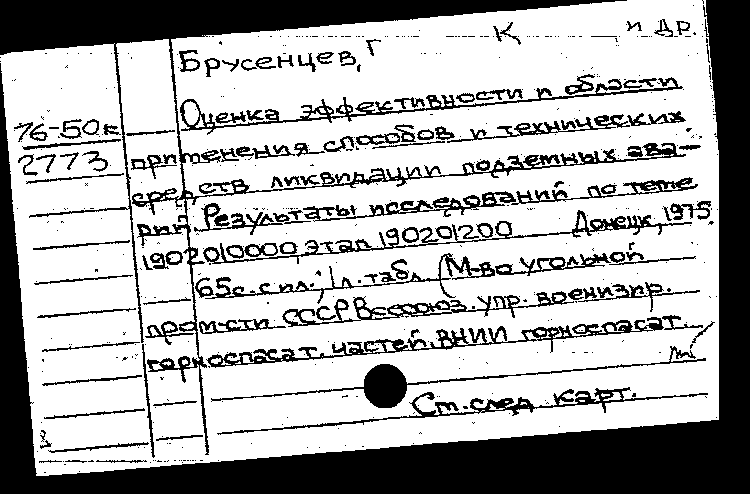 Брусенцев, Г К и др.
76-50к Оценка эффективности и области
2773 применения способов и технических
средств ликвидации подземных ава-
рий. Результаты исследований по теме
1902010000, этап 190201200 Донецк, 1975.
65с. с ил.; 1 л. табл. (М-во угольной
пром-сти СССР Всесоюз. упр. военизир.
горноспасат. частей. ВНИИ горноспасат.
Ст. след карт.